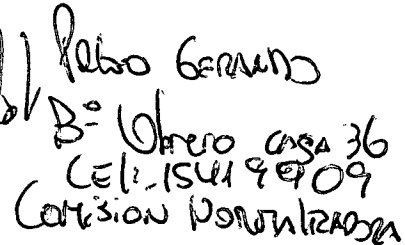 Pablo GERARDO
Bº Obrero casa 36
CEl: 15419909
COMISION NORMALIZADORA